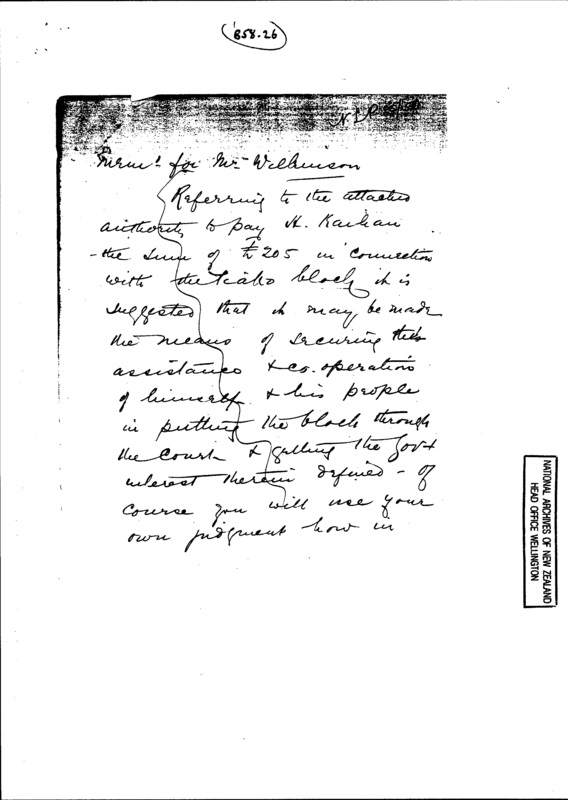 858.26
N.L.P.
Mem: for Mr Wilkinson
Referring to the attached
authority to pay H. Kaihau
- the sum of £205 in connection
with the block it is
suggested that it may be made
the means of securing the
assistance & co-operation
of himself & his people
in putting the block through
the Court & getting the Govt
interest therein defined - of
course you will use your
own judgment how in
NATIONAL ARCHIVES OF NEW ZEALAND
HEAD OFFICE WELLINGTON